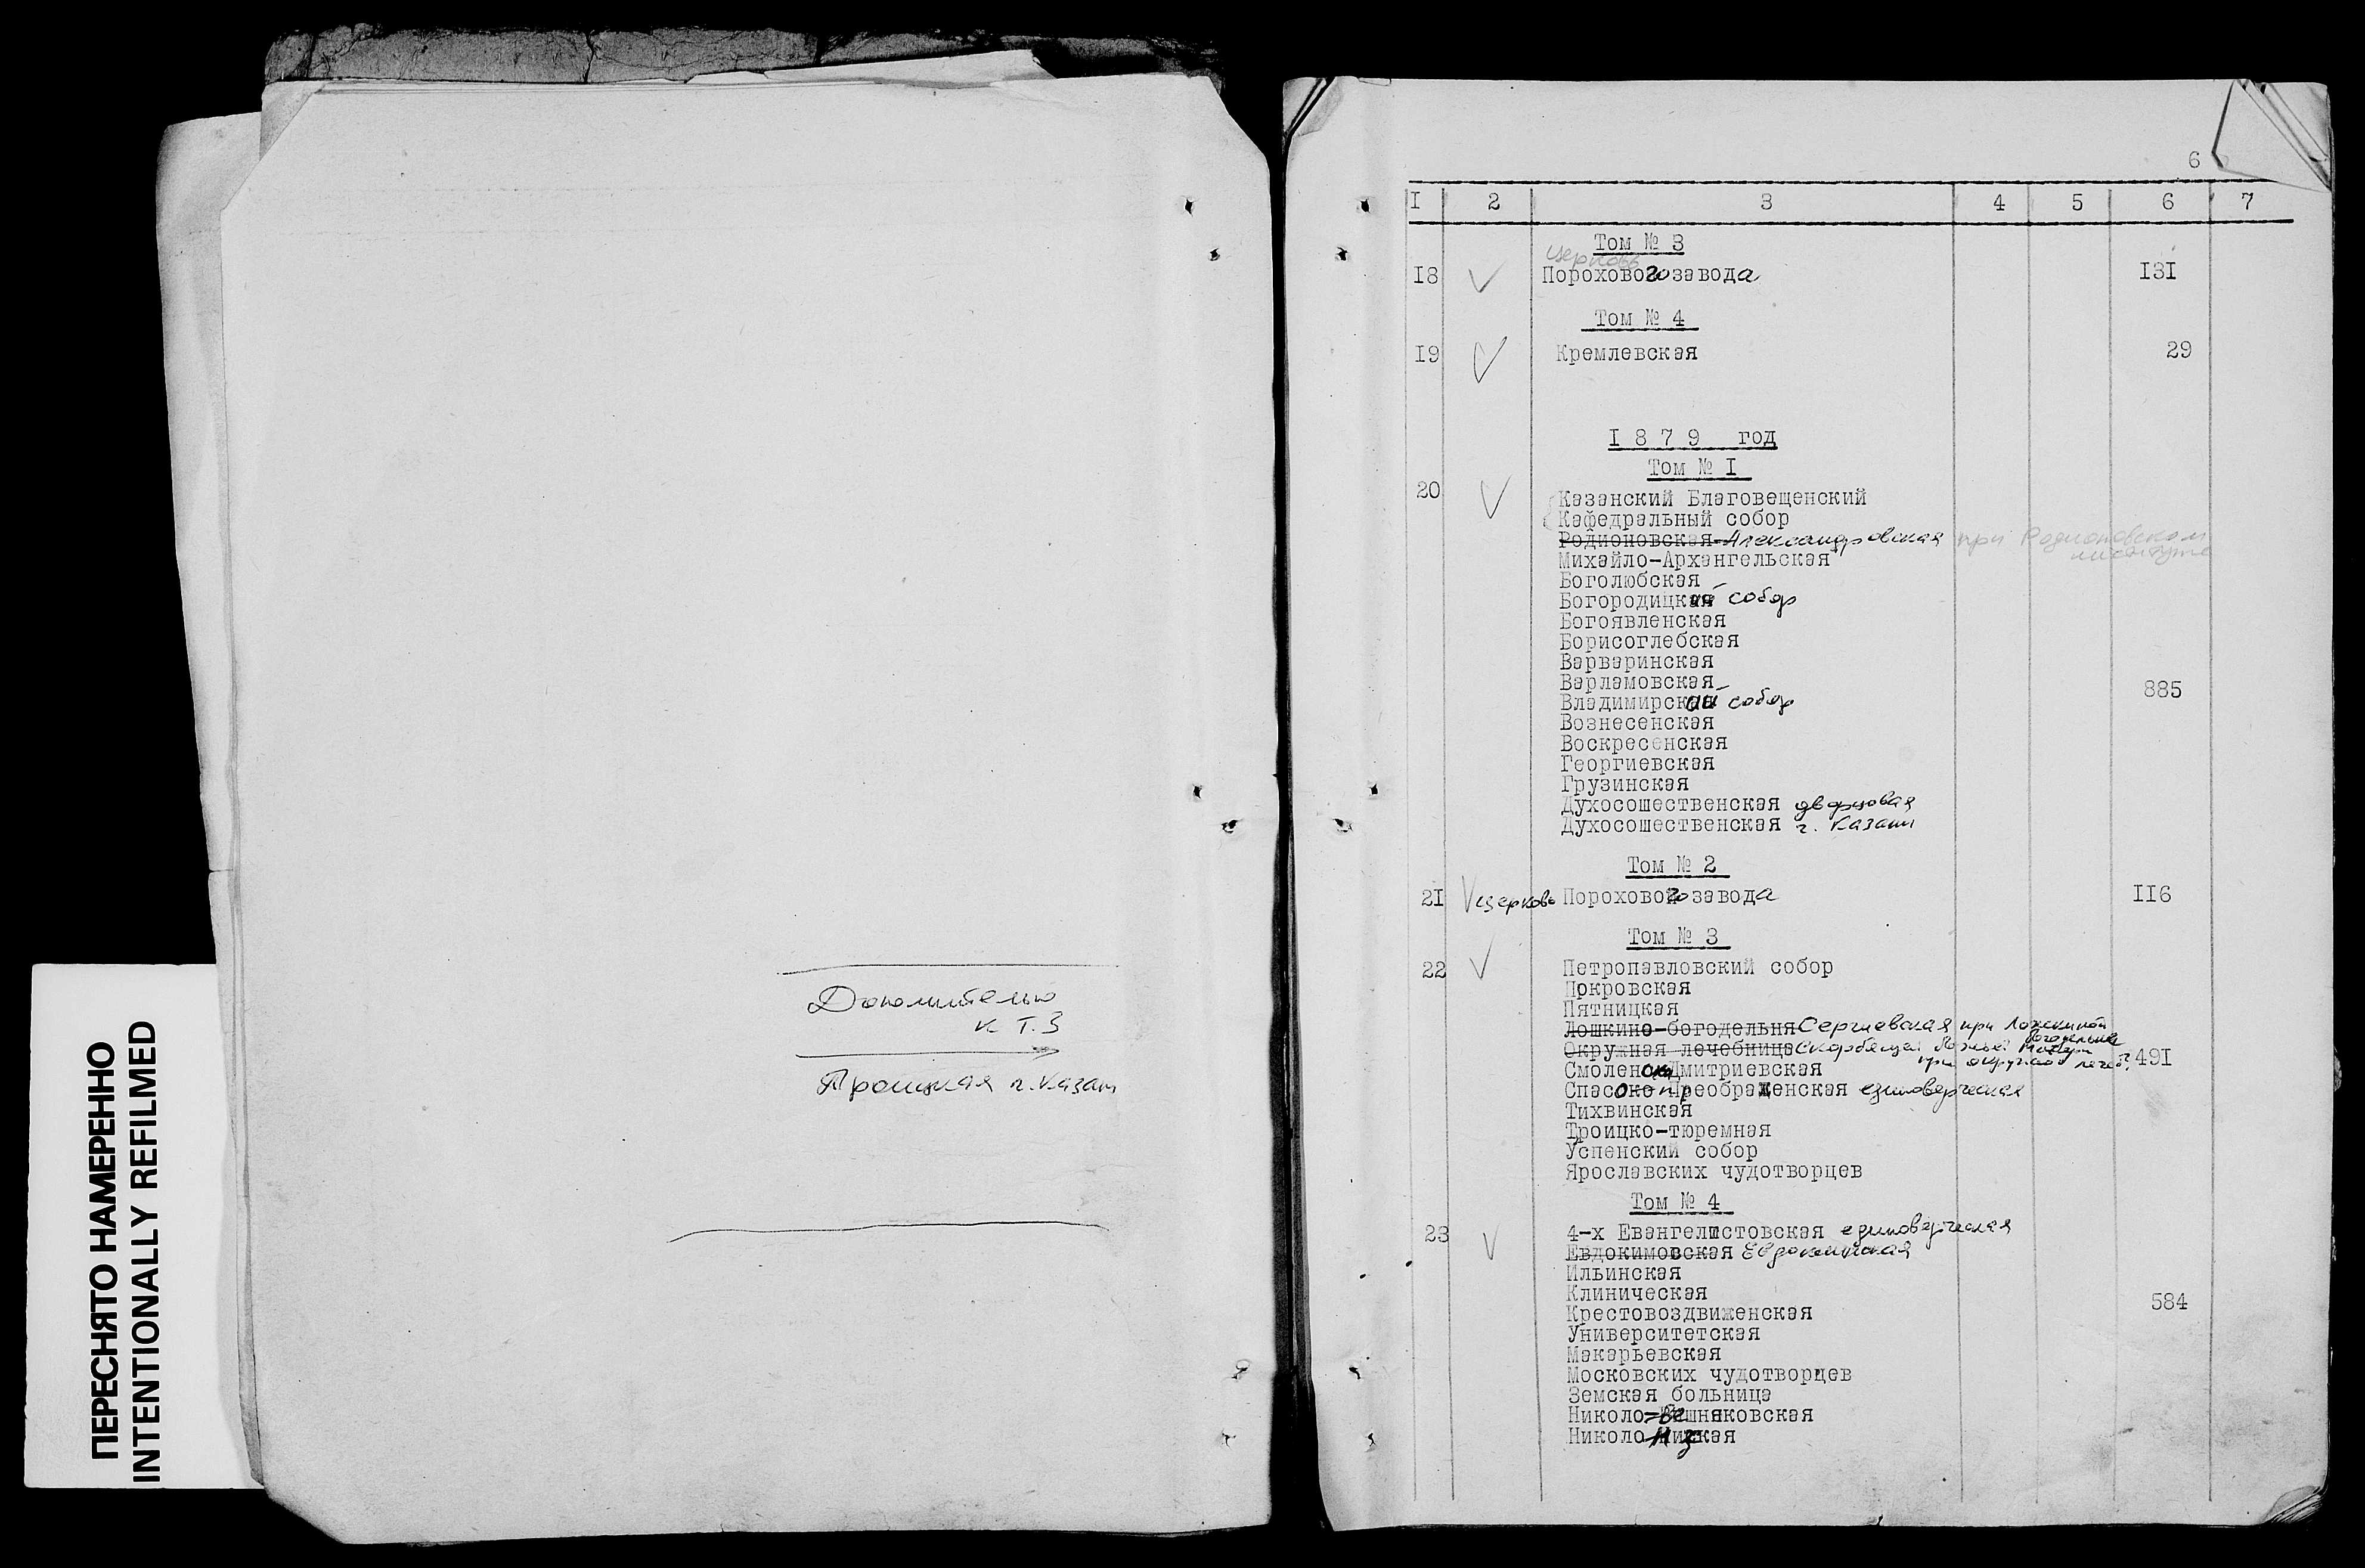 ПЕРЕСНЯТО НАМЕРЕННО
INTENTIONALLY REFILMED
Дополнительно
к т. 3
Троицкая г. Казани
6
I 2 3 4 5 6 7
Том № 3
церковь
18 Порохового завода 131
Том № 4
19 Кремлевская 29
I 8 7 9 год
Том № I
20 Казанский Благовещенский
Кафедральный собор
Родионовская-Александровская при Родионовском
институте
Михайло-Архангельская
Боголюбская
Богородицкий собор
Богоявленская
Борисоглебская
Варваринская
Варламовская
Владимирский собор 885
Вознесенская
Воскресенская
Георгиевская
Грузинская
Духосошественская дворцовая
Духосошественская г. Казани
Том № 2
21 церковь Порохового завода II6
Том № 3
22 Петропавловский собор
Покровская
Пятницкая
Лошкино-богодельня Сергиевская при Ложкиной
богадельне
Окружная лечебница Скорбящей Божьей Матери
при окружной лечеб. 491
Смоленско Дмитриевская
Спасо Преображенская единоверческая
Тихвинская
Троицко-тюремная
Успенский собор
Ярославских чудотворцев
Том № 4
23 4-х Евангелистовская единоверческая
Евдокимовская Евдокиинская
Ильинская
Клиническая
Крестовоздвиженская 584
Университетская
Макарьевская
Московских чудотворцев
Земская больница
Николо-Вешняковская
Николо-Низкая